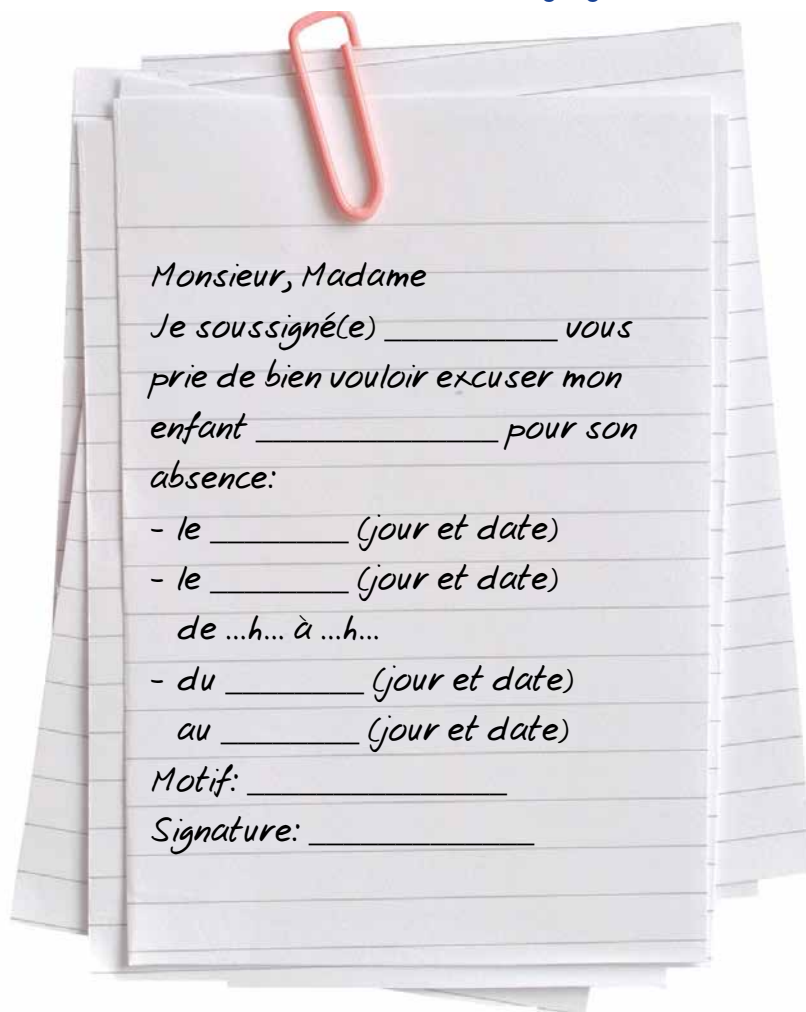 Monsieur, Madame
Je soussigné(e) ____________ vous
prie de bien vouloir excuser mon
enfant _________________ pour son
absence:
- le __________ (jour et date)
- le __________ (jour et date)
de ...h... à ...h...
- du __________ (jour et date)
au __________ (jour et date)
Motif: __________________
Signature: ________________